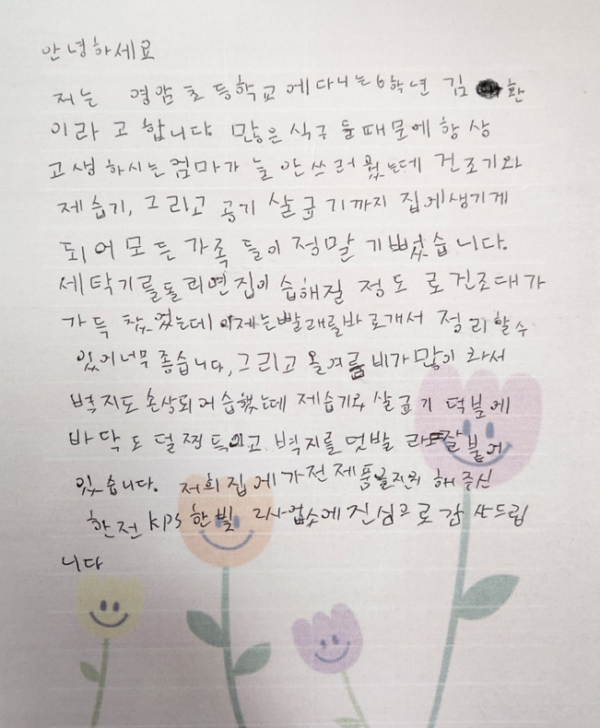 안녕하세요
저는 영암초등학교에 다니는 6학년 김 환
이라고 합니다. 많은 식구들 때문에 항상
고생하시는 엄마가 늘 안쓰러웠는데 건조기와
제습기, 그리고 공기 살균기까지 집에 생기게
되어 모든 가족들이 정말 기뻤습니다.
세탁기를 돌리면 집이 습해질 정도로 건조대가
가득 찼었는데 이제는 빨래를 바로 개서 정리할 수
있어 너무 좋습니다, 그리고 올여름 비가 많이 와서
벽지도 손상되어 습했는데 제습기와 살균기 덕분에
바닥도 덜 찐득이고 벽지를 덧발라도 잘 붙어
있습니다. 저희 집에 가전제품을 지원해 주신
한전 KPS 한빛 2사업소에 진심으로 감사드립
니다